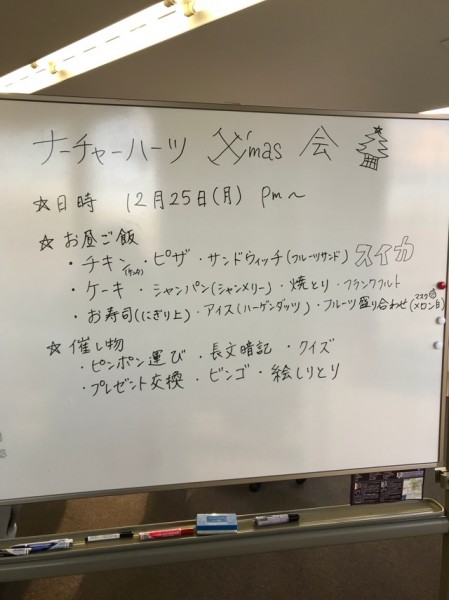 ナーチャーハーツ X'mas 会
☆日時 12月25日(月) Pm〜
☆お昼ご飯
・チキン・ピザ・サンドウィッチ(フルーツサンド) スイカ
・ケーキ・シャンパン(シャンメリー)・焼とり・フランクフルト
・お寿司(にぎり上)・アイス(ハーゲンダッツ)・フルーツ盛り合わせ(マスクメロン
☆催し物
・ピンポン運び・長文暗記・クイズ
・プレゼント交換・ビンゴ・絵しりとり